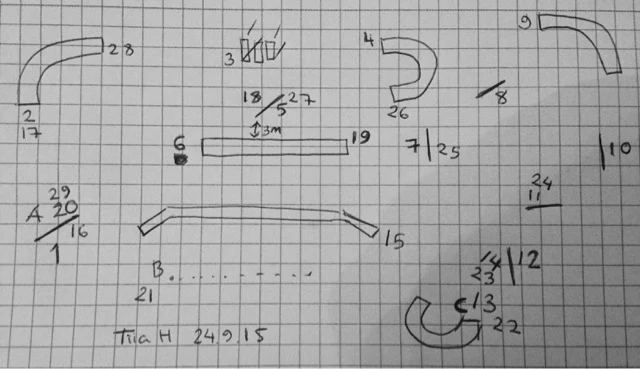 9
4
28
3
18 27
5
8
26
2
17
3m
6
19
7 25
10
24
11
29
A 20
16
1
15
14 12
23
B
21
13
22
Tiia H 24.9.15